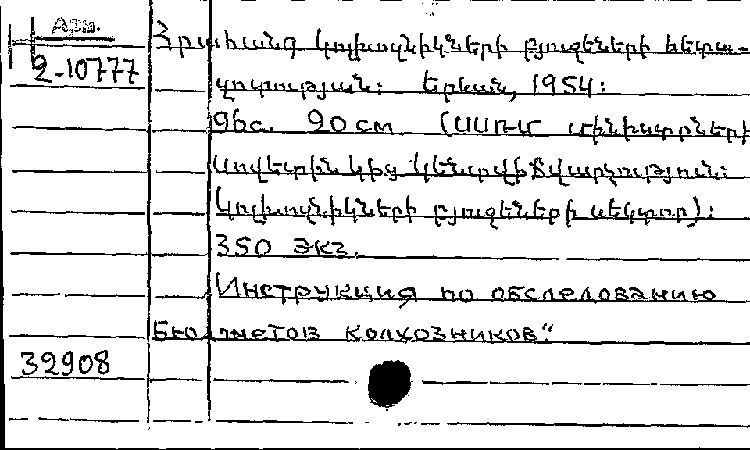 Арм.
2-10777
Հրահանգ կոլխոզնիկների բյուջեների հետա-
զոտության: Երևան, 1954:
96с. 20см (ՍՍՌՄ Մինիստրների
Սովետին կից Կենտ վիճվարչություն:
Կոլխոզնիկների բյուջեների սեկտոր):
350 экз.
Инструкция по обследованию
бюджетов колхозников."
32908